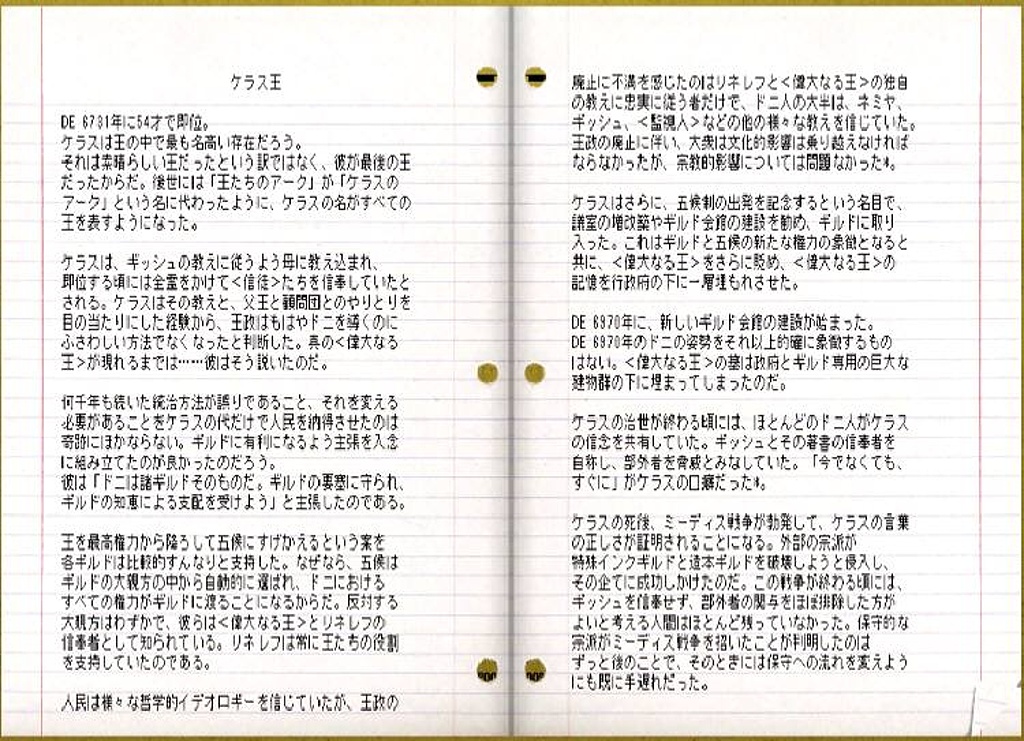 ケラス王
DE 6731年に54才で即位。
ケラスは王の中で最も名高い存在だろう。
それは素晴らしい王だったという訳ではなく、彼が最後の王
だったからだ。後世には「王たちのアーク」が「ケラスの
アーク」という名に代わったように、ケラスの名がすべての
王を表すようになった。
ケラスは、ギッシュの教えに従うよう母に教え込まれ、
即位する頃には全霊をかけて<信徒>たちを信奉していたと
される。ケラスはその教えと、父王と顧問団とのやりとりを
目の当たりにした経験から、王政はもはやドニを導くのに
ふさわしい方法でなくなったと判断した。真の<偉大なる
王>が現れるまでは……彼はそう説いたのだ。
何千年も続いた統治方法が誤りであること、それを変える
必要があることをケラスの代だけで人民を納得させたのは
奇跡にほかならない。ギルドに有利になるよう主張を入念
に組み立てたのが良かったのだろう。
彼は「ドニは諸ギルドそのものだ。ギルドの要塞に守られ、
ギルドの知恵による支配を受けよう」と主張したのである。
王を最高権力から降ろして五候にすげかえるという案を
各ギルドは比較的すんなりと支持した。なぜなら、五候は
ギルドの大親方の中から自動的に選ばれ、ドニにおける
すべての権力がギルドに渡ることになるからだ。反対する
大親方はわずかで、彼らは<偉大なる王>とリネレフの
信奉者として知られている。リネレフは常に王たちの役割
を支持していたのである。
人民は様々な哲学的イデオロギーを信じていたが、王政の
廃止に不満を感じたのはリネレフと<偉大なる王>の独自
の教えに忠実に従う者だけで、ドニ人の大半は、ネミヤ、
ギッシュ、<監視人>などの他の様々な教えを信じていた。
王政の廃止に伴い、大衆は文化的影響は乗り越えなければ
ならなかったが、宗教的影響については問題なかった*。
ケラスはさらに、五候制の出発を記念するという名目で、
議室の増改築やギルド会館の建設を勧め、ギルドに取り
入った。これはギルドと五候の新たな権力の象徴となると
共に、<偉大なる王>をさらに貶め、<偉大なる王>の
記憶を行政府の下に一層埋もれさせた。
DE 6970年に、新しいギルド会館の建設が始まった。
DE 6970年のドニの姿勢をそれ以上的確に象徴するもの
はない。<偉大なる王>の墓は政府とギルド専用の巨大な
建物群の下に埋まってしまったのだ。
ケラスの治世が終わる頃には、ほとんどのドニ人がケラス
の信念を共有していた。ギッシュとその著書の信奉者を
自称し、部外者を脅威とみなしていた。「今でなくても、
すぐに」がケラスの口癖だった*。
ケラスの死後、ミーディス戦争が勃発して、ケラスの言葉
の正しさが証明されることになる。外部の宗派が
特殊インクギルドと造本ギルドを破壊しようと侵入し、
その企てに成功しかけたのだ。この戦争が終わる頃には、
ギッシュを信奉せず、部外者の関与をほぼ排除した方が
よいと考える人間はほとんど残っていなかった。保守的な
宗派がミーディス戦争を招いたことが判明したのは
ずっと後のことで、そのときには保守への流れを変えよう
にも既に手遅れだった。